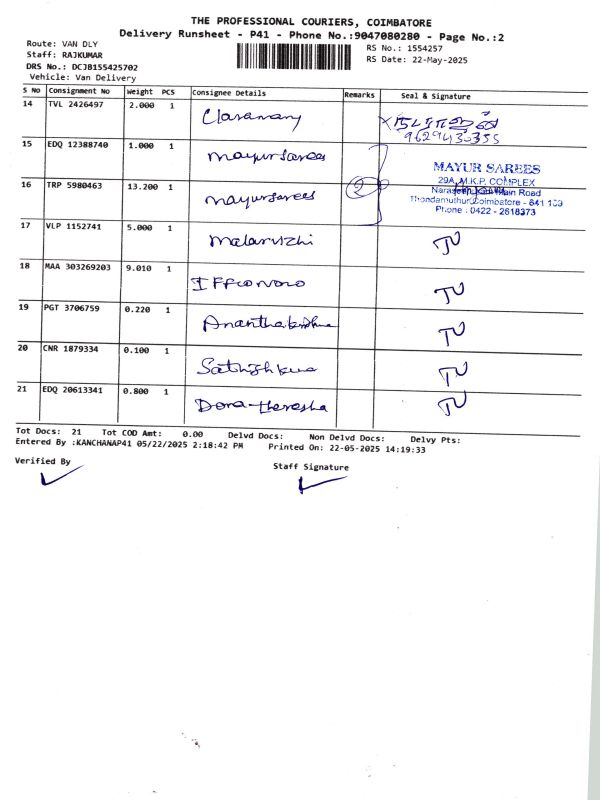 THE PROFESSIONAL COURIERS, COIMBATORE
Delivery Runsheet - P41 - Phone No.:9047080280 - Page No.:2
Route: VAN DLY
RS No.: 1554257
Staff: RAJKUMAR
RS Date: 22-May-2025
DRS No.: DCJB155425702
Vehicle: Van Delivery
S No Consignment No Weight PCS Consignee Details Remarks Seal & Signature
14 TVL 2426497 2.000 1
15 EDQ 12388740 1.000 1 mayursarees
16 TRP 5980463 13.200 1 mayursarees 2
MAYUR SAREES
29A, M.K.P. COMPLEX
Main Road
Coimbatore - 641 109
Phone : 0422 - 2618373
17 VLP 1152741 5.000 1 malarvizhi
18 MAA 303269203 9.010 1
19 PGT 3706759 0.220 1
20 CNR 1879334 0.100 1
21 EDQ 20613341 0.800 1
Tot Docs: 21 Tot COD Amt: 0.00 Delvd Docs: Non Delvd Docs: Delvy Pts:
Entered By :KANCHANAP41 05/22/2025 2:18:42 PM Printed On: 22-05-2025 14:19:33
Verified By
Staff Signature